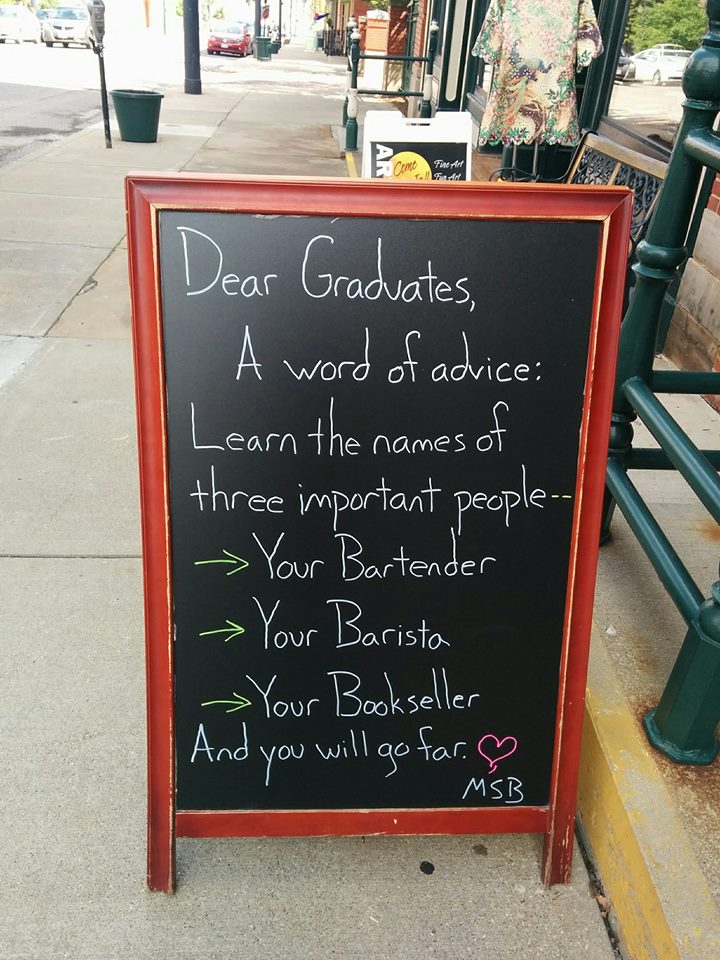 AR
Come
Fine Art
Fun Art
Dear Graduates,
A word of advice:
Learn the names of
three important people--
→ Your Bartender
→ Your Barista
→ Your Bookseller
And you will go far. ♡
MSB